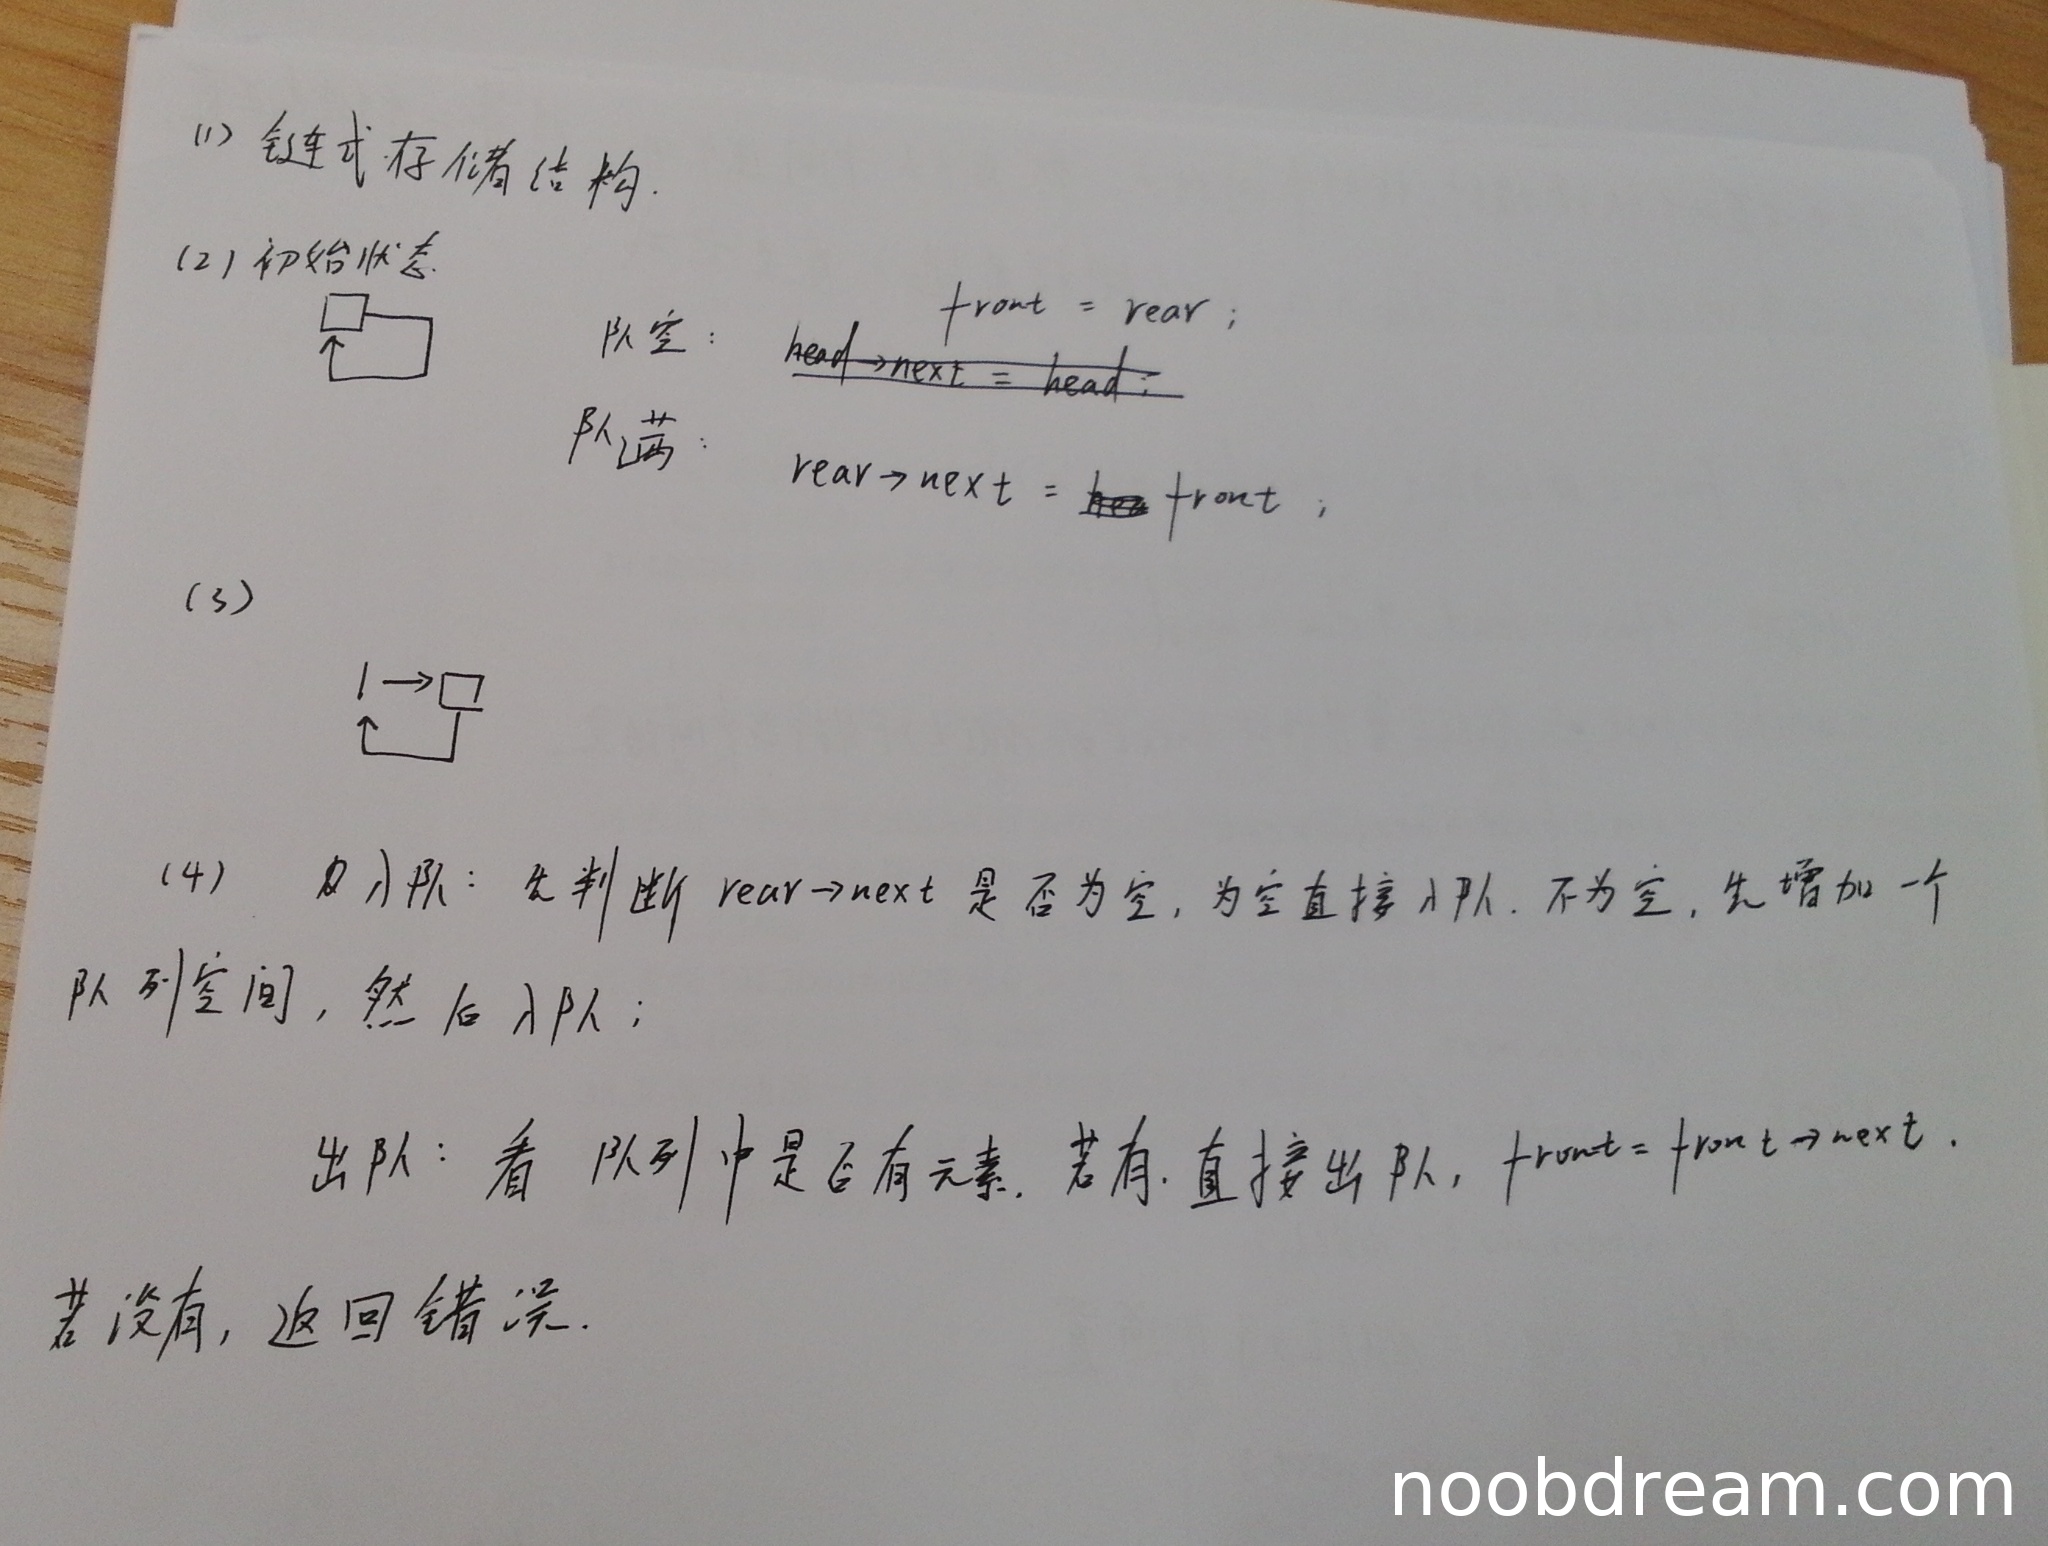 (1) 链式存储结构.
(2) 初始状态.
队空: front = rear;
head→next = head;
队满:
rear→next = front ;
(3)
1 →
(4) 入队: 先判断 rear→next 是否为空, 为空直接入队. 不为空, 先增加一个
队列空间, 然后入队;
出队: 看 队列中是否有元素. 若有. 直接出队, front = front→next.
若没有, 返回错误.
noobdream.com